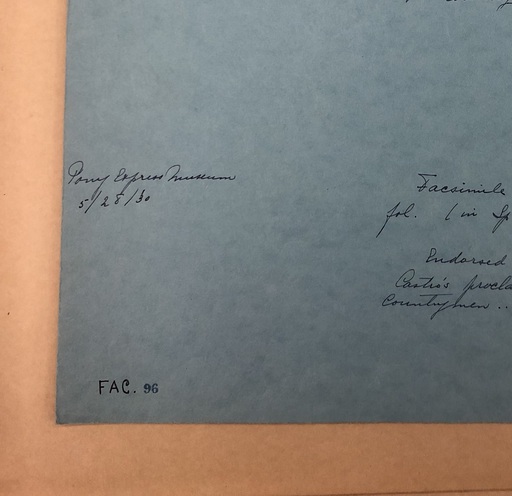 Pony Express Museum
5/28/30
Facsimile
fol. (in Sp
Endorsed
Castro's procla
Countrymen ..
FAC. 96